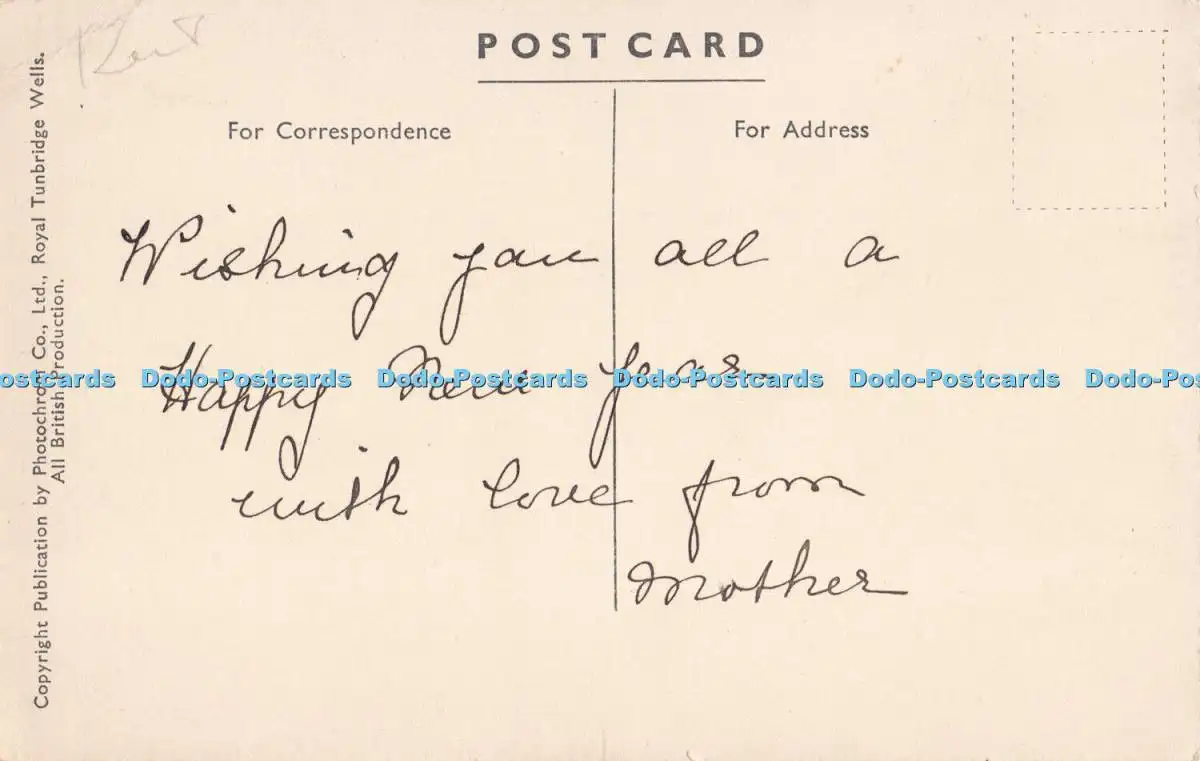 POST CARD
For Correspondence
For Address
Wishing you all a
Happy New Year
with love from
Mother
Copyright Publication by Photochrom Co., Ltd., Royal Tunbridge Wells.
All British Production.
Dodo-Postcards Dodo-Postcards Dodo-Postcards Dodo-Postcards